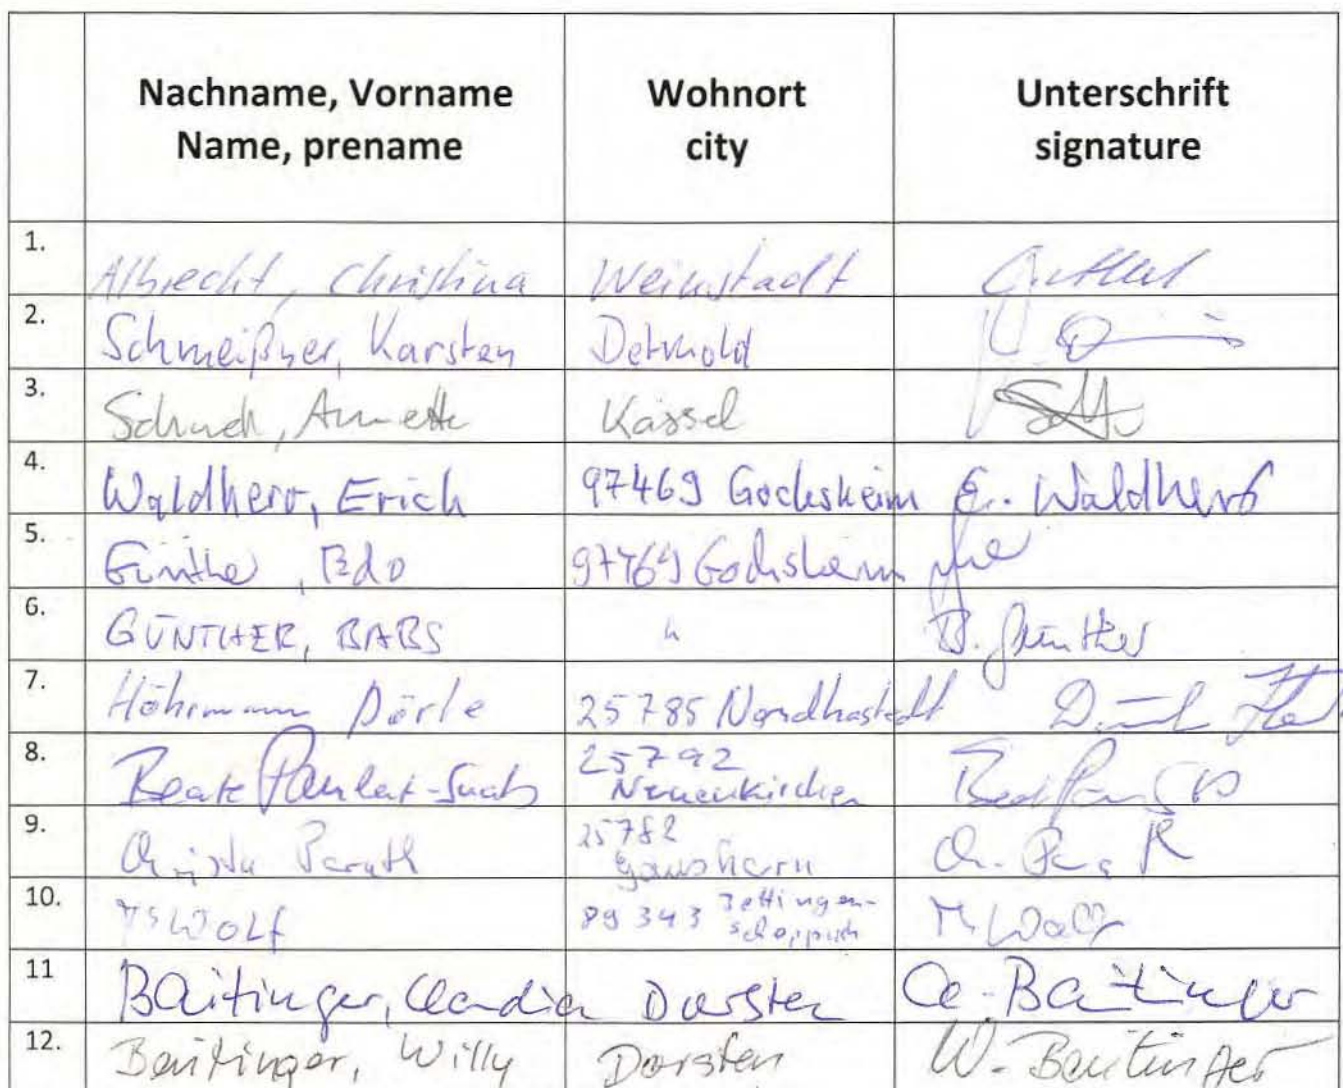 Nachname, Vorname Wohnort Unterschrift
Name, prename city signature
1. Albrecht, Christina Weinstadt
2. Schmeißner, Karsten Detmold
3. Annette Kassel
4. Waldherr, Erich 97469 Gochsheim E. Waldherr
5. Günther, Edo 97469 Gochsheim
6. GÜNTHER, BABS " B. Günther
7. Höhrmann Dörte 25785 Nordhastedt
8. Beate 25792
Neuenkirchen
9. Christa 25782
10. Wolf 89343 Jettingen-
Scheppach M Wolf
11 Baitinger, Claudia Dorsten C. Baitinger
12. Baitinger, Willy Dorsten W. Baitinger